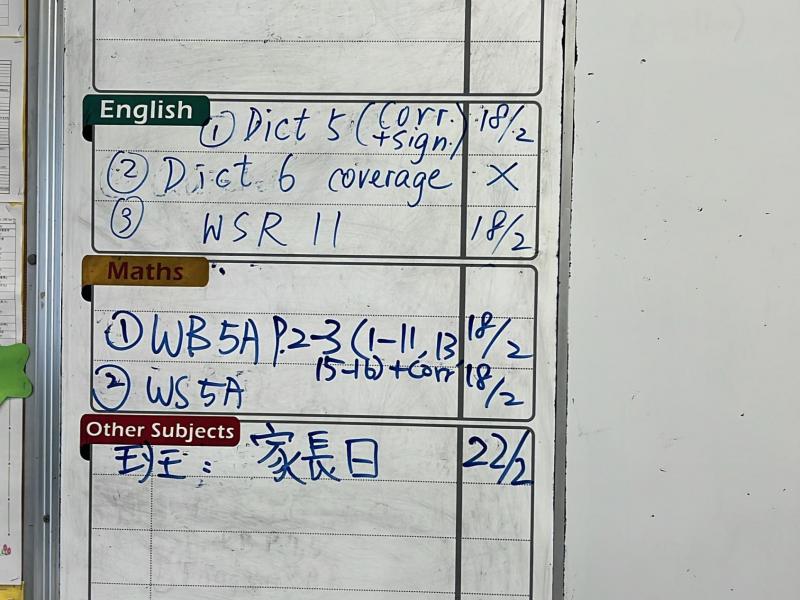 English
① Dict 5 (Corr. +sign.) 18/2
② Dict 6 coverage X
③ WSR 11 18/2
Maths
① WB 5A P.2-3 (1-11, 13 18/2
15-16) + Corr
② WS 5A 18/2
Other Subjects
班: 家長日 22/2